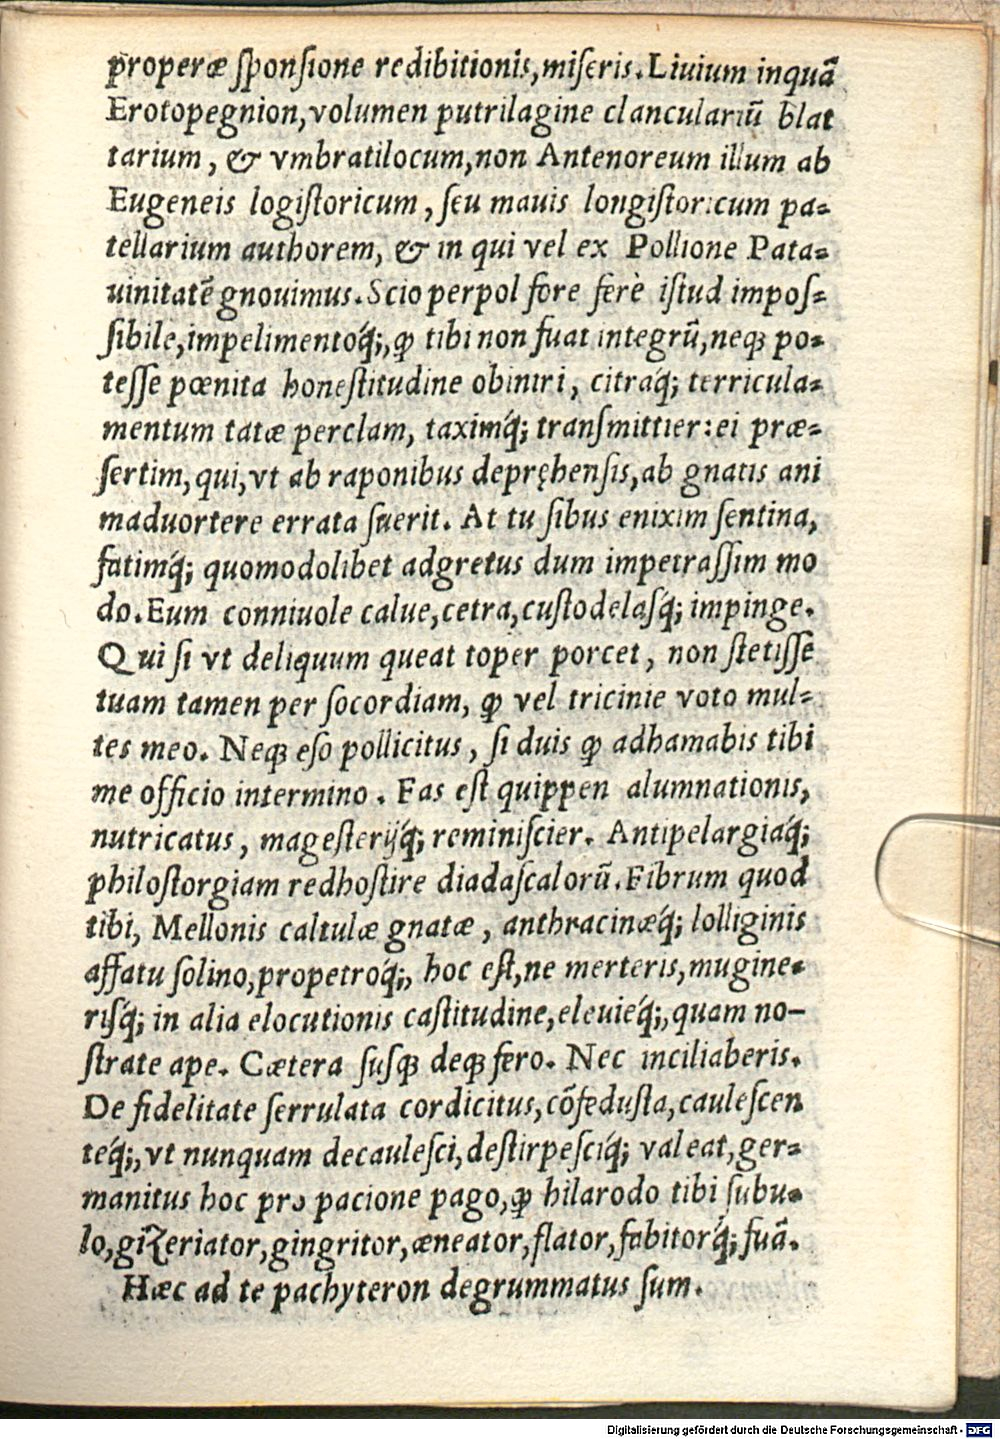 properæ ſponſione redibitionis,miſeris.Liuium inquā
Erotopegnion,volumen putrilagine clanculariū blat
tarium, & vmbratilocum,non Antenoreum illum ab
Eugeneis logiſtoricum, ſeu mauis longiſtoricum pa-
tellarium authorem, & in qui vel ex Pollione Pata-
uinitatē gnouimus.Scio perpol fore ferè iſtud impoſ-
ſibile,impelimentoq́;,ꝙ tibi non fuat integrū,neqꝫ po-
teſſe pœnita honeſtitudine obiniri, citraq́; terricula-
mentum tatæ perclam, taximq́; tranſmittier:ei præ-
ſertim,qui,vt ab raponibus depręhenſis,ab gnatis ani
maduortere errata ſuerit. At tu ſibus enixim ſentina,
fatimq́; quomodolibet adgretus dum impetraſſim mo
do.Eum conniuole calue,cetra,cuſtodelaſq́; impinge.
Qui ſi vt deliquum queat toper porcet, non ſtetiſſe
tuam tamen per ſocordiam, ꝙ vel tricinie voto mul-
tes meo. Neqꝫ eſo pollicitus, ſi duis ꝙ adhamabis tibi
me officio intermino. Fas eſt quippen alumnationis,
nutricatus, mageſterijq́; reminiſcier. Antipelargiaq́;
philoſtorgiam redhoſtire diadaſcalorū.Fibrum quod
tibi, Mellonis caltulæ gnatæ, anthracinæq́; lolliginis
affatu ſolino,propetroq́;, hoc eſt,ne merteris,mugine-
riſq́; in alia elocutionis caſtitudine,eleuieq́;,quam no-
ſtrate ape. Cætera ſuſqꝫ deqꝫ fero. Nec inciliaberis.
De fidelitate ſerrulata cordicitus,cōfeduſta,cauleſcen
teq́;,vt nunquam decauleſci,deſtirpeſciq́; valeat,ger-
manitus hoc pro pacione pago,ꝙ hilarodo tibi ſubu-
lo,gizeriator,gingritor,æneator,flator,fabitorq́; fuā.
Hæc ad te pachyteron degrummatus ſum.
Digitalisierung gefördert durch die Deutsche Forschungsgemeinschaft - DFG